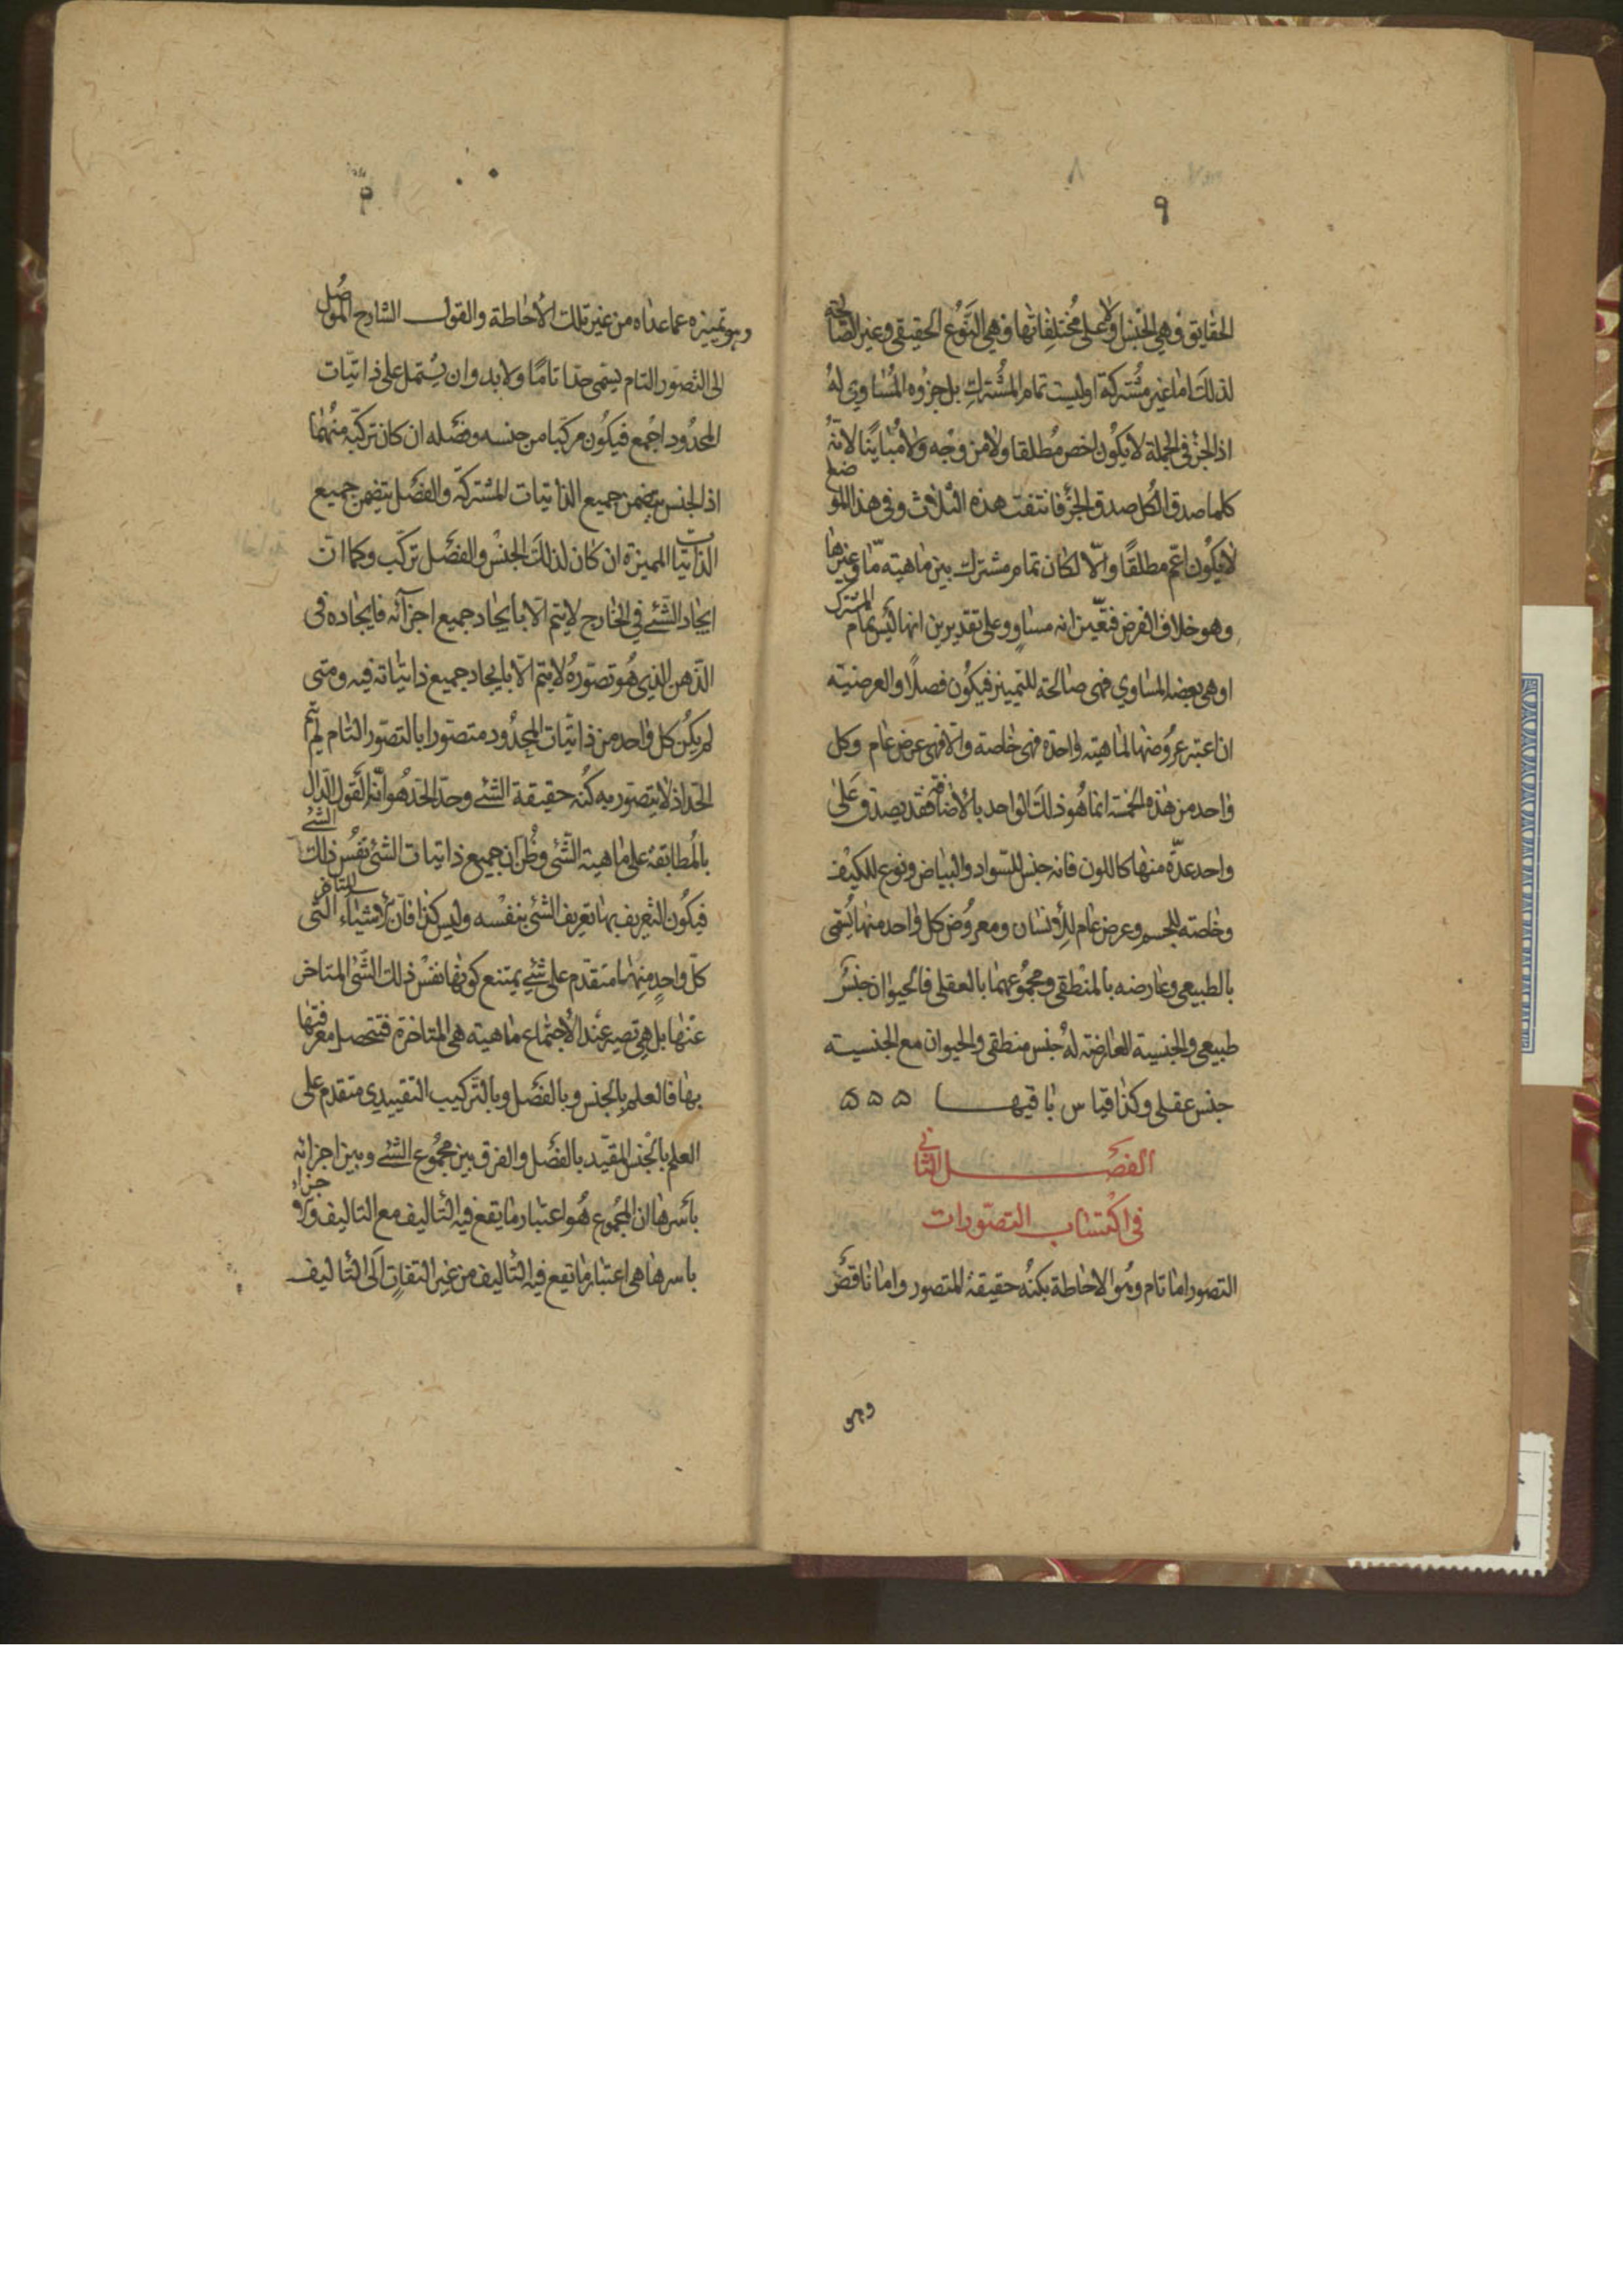 ٩
الحقايق وهي الجنس اولا على مختلفاتها وهي النوع الحقيقي وغير الصالحة
لذلك اما غير مشتركة او ليست تمام المشترك بل جزوه المساوي له
اذ الجز في الجملة لا يكون اخص مطلقا ولا من وجه ولا مباينا لانه
كلما صدق الكل صدق الجز فانتفت هذه الثلاث وفي هذا الموضع
لا يكون اعم مطلقا والا لكان تمام مشترك بين ماهيته ما وغيرها
وهو خلاف الفرض فتعين انه مساو وعلى تقديرين انها ليس تمام المشترك
او هي بعضه المساوي فهى صالحة للتمييز فيكون فصلا والعرضية
ان اعتبر عروضها لماهيته واحدة فهى خاصة والا فهى عرض عام وكل
واحد من هذه الخمسة انما هو ذلك الواحد بالاضافة فقد يصدق على
واحد عدة منها كاللون فانه جنس للسواد والبياض ونوع للكيف
وخاصته للجسم وعرض عام للانسان ومعروض كل واحد منها يسمى
بالطبيعي وعارضه بالمنطقي ومجموعهما بالعقلى فالحيوان جنس
طبيعي والجنسية العارضة له جنس منطقي والحيوان مع الجنسيته
جنس عقلى وكذا قياس باقيها ه ه ه
الفصل الثاني
في اكتساب التصورات
التصور اما تام وهو الاحاطة بكنه حقيقة المتصور واما ناقص
وهو
وهو تمييزه عما عداه من غير تلك الاحاطة والقول الشارح الموصل
الى التصور التام يسمى حدا تاما ولا بد وان يشتمل على ذاتيات
المحدود اجمع فيكون مركبا من جنسه وفصله ان كان تركبه منهما
اذ الجنس يتضمن جميع الذاتيات المشتركة والفصل يتضمن جميع
الذاتيات المميزة ان كان لذلك الجنس والفصل تركب وكما ان
ايجاد الشئ في الخارج لا يتم الا بايجاد جميع اجزائه فايجاده في
الذهن الذي هو تصوره لا يتم الا بايجاد جميع ذاتياته فيه ومتى
لم يكن كل واحد من ذاتيات المحدود متصورا بالتصور التام لم يتم
الحد اذ لا يتصور به كنه حقيقة الشئ وحد الحد هو انه القول الدال
بالمطابقة على ماهية الشئ وظن ان جميع ذاتيات الشئ نفس ذلك الشئ
فيكون التعريف بها تعريف الشئ بنفسه وليس كذا فان الاشياء التى
كل واحد منهما متقدم على شئ يمتنع كونها نفس ذلك الشئ المتاخر
عنها بل هي تصير عند الاجتماع ماهيته هى المتاخرة فتحصل معرفتها
بها فالعلم بالجنس وبالفصل وبالتركيب التقييدى متقدم على
العلم بالجنس المقيد بالفصل والفرق بين مجموع الشئ وبين اجزائه
باسرها ان المجموع هو اعتبار ما يقع فيه التاليف مع التاليف والاجزاء
باسرها هى اعتبار ما تقع فيه التاليف من غير التفات الى التاليف